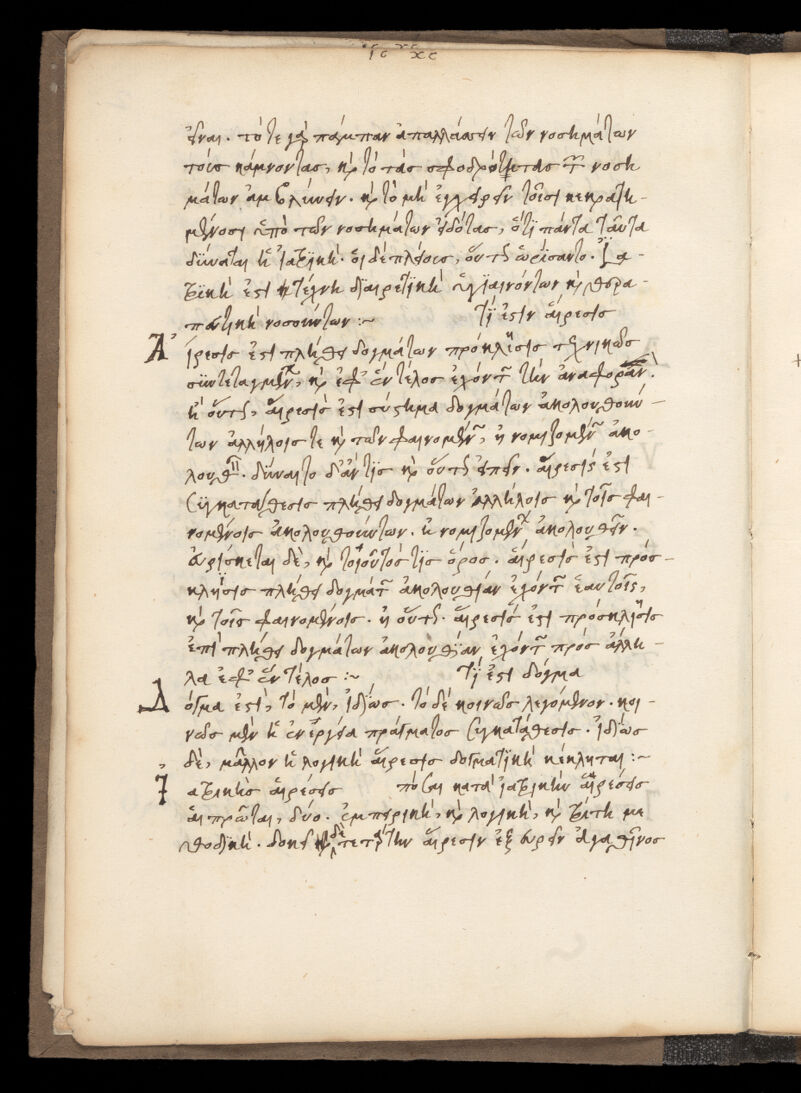 ις χς
εἶναι. τό τε γὰρ πάμπαν ἀπαλλάσσειν τῶν νοσημάτων
τοὺς κάμνοντας, καὶ τὸ τὰς σφοδρότητας τῶν νοση
μάτων ἀμβλύνειν. καὶ τὸ μὴ ἐγχειρεῖν τοῖσι κεκρατη-
μένοσι ὑπὸ τῶν νοσημάτων εἰδότας, ὅτι πάντα ταῦτα
δύναται ἡ ἰατρικὴ. οἱ δὲ πλείους, οὕτως ὡρίσαντο. Ἰα-
τρικὴ ἐστὶ τέχνη διαιρετικὴ ὑγιαινόντων καὶ θερα-
πευτικὴ νοσούντων :~ τί ἐστιν αἵρεσις
Αἵρεσις ἐστὶ πλήθους δογμάτων πρόκλησις τεχνικῶς
συντεταγμένων, καὶ ἐφ' ἓν τέλος ἐχόντων τὴν ἀναφορὰν.
ἢ οὕτως, αἵρεσίς ἐστι σύστημα δογμάτων ἀκολουθούν-
των ἀλλήλοις τε καὶ τῶν φαινομένων, ἢ νομιζομένων ἀκο-
λουθεῖν. δύναιτο δ' ἄν τις καὶ οὕτως εἰπεῖν. αἵρεσίς ἐστι
συγκατάθεσις πλήθους δογμάτων ἀλλήλοις καὶ τοῖς φαι-
νομένοις ἀκολουθούντων. ἢ νομιζομένων ἀκολουθεῖν.
εὑρίσκεται δὲ, καὶ τοιοῦτός τις ὅρος. αἵρεσίς ἐστι πρόσ-
κλησις πλήθους δογμάτων ἀκολουθίαν ἐχόντων ἑαυτοῖς,
καὶ τοῖς φαινομένοις. ἢ οὕτως. αἵρεσίς ἐστι πρόσκλησις
ἐπὶ πλήθους δογμάτων ἀκολουθίαν ἐχόντων πρὸς ἄλλη-
λα ἐφ' ἓν τέλος :~ τί ἐστι δόγμα
Δόγμα ἐστὶ, τὸ μὲν, ἰδίως. τὸ δὲ κοινῶς λεγόμενον. κοι-
νῶς μὲν ἡ ἐνεργεία πράγματος συγκατάθεσις. ἰδίως
δὲ, μᾶλλον ἡ λογικὴ αἵρεσις δογματικὴ κέκληται :~
Ἰατρικῆς αἱρέσεις πόσαι κατὰ ἰατρικὴν αἱρέσεις
αἱ πρῶται, δύο. ἐμπειρικὴ, καὶ λογικὴ, καὶ τρίτη με
θοδικὴ. δοκεῖ δὲ τετάρτην αἵρεσιν ἐξευρεῖν ἀγαθῖνος